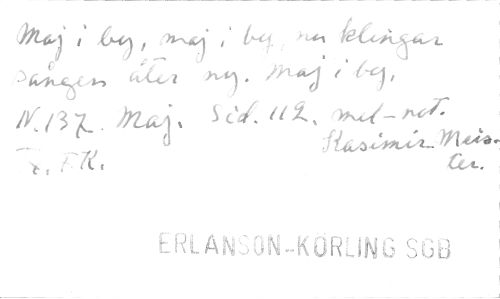 Maj i by, maj i by, nu klingar
sången åter ny. Maj i by.
N. 137. Maj. Sid. 112. mel-not.
F. F. K. Kasimir Meis-
ter.
ERLANSON-KÖRLING SGB